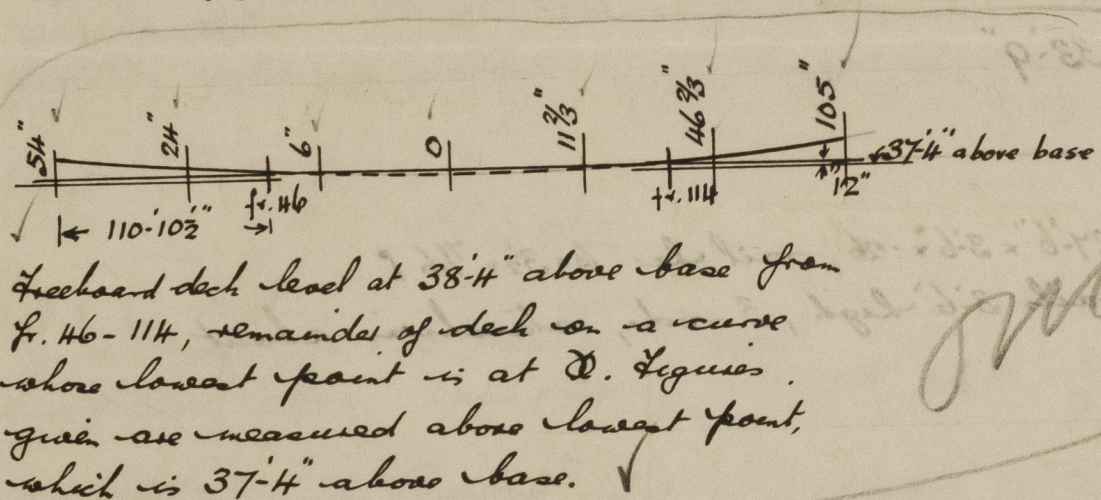 54"
24"
6"
0
11 2/3"
46 2/3"
105"
37'-4" above base
12"
fr. 46
fr. 114
110'-10½"
Freeboard deck level at 38'-4" above base from
fr. 46-114, remainder of deck on a curve
whose lowest point is at . Figures
given are measured above lowest point,
which is 37'-4" above base.